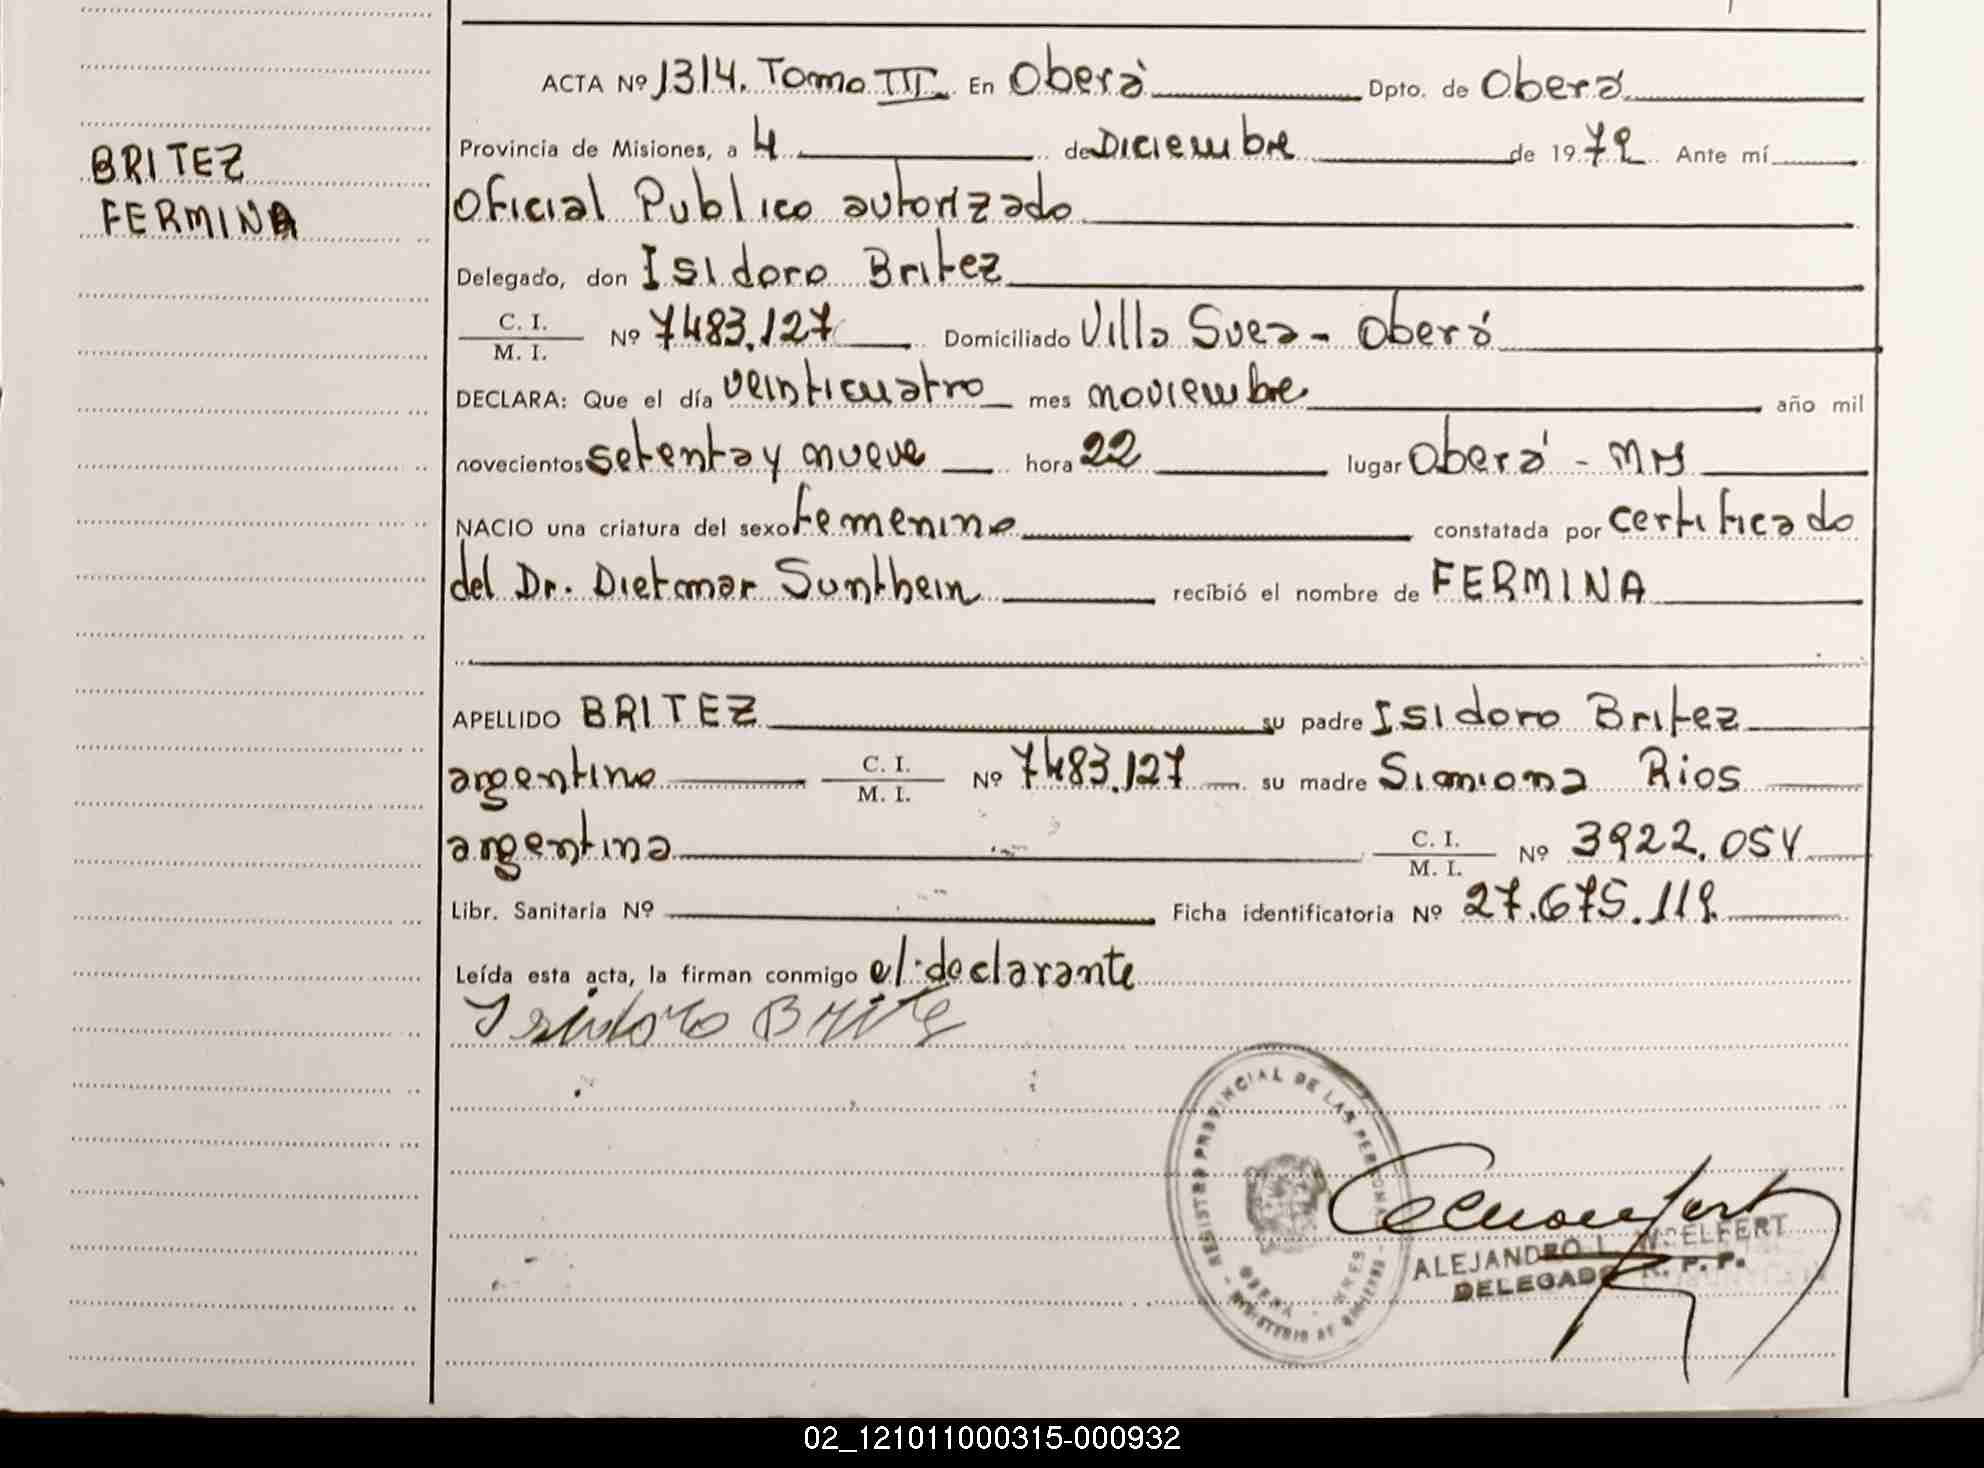 ACTA Nº 1314. Tomo III En Oberá Dpto. de Oberá
Provincia de Misiones, a 4 de Diciembre de 1979 Ante mí
BRITEZ
FERMINA
Oficial Publico autorizado
Delegado, don Isidoro Britez
C. I. / M. I. Nº 7483.127 Domiciliado Villa Suea - Oberá
DECLARA: Que el día veinticuatro mes noviembre año mil
novecientos setenta y nueve hora 22 lugar Oberá - Mns
NACIO una criatura del sexo femenino constatada por certificado
del Dr. Dietmar Sunthein recibió el nombre de FERMINA
APELLIDO BRITEZ su padre Isidoro Britez
argentino C. I. / M. I. Nº 7483.127 su madre Simiona Rios
argentina C. I. / M. I. Nº 3922.054
Libr. Sanitaria Nº Ficha identificatoria Nº 27.675.119
Leída esta acta, la firman conmigo el declarante
Isidoro Brite
REGISTRO PROVINCIAL DE LAS PERSONAS
OBERA - MNES
MINISTERIO DE GOBIERNO
ALEJANDRO L. WOELFERT
DELEGADO R. P. P.
02_121011000315-000932